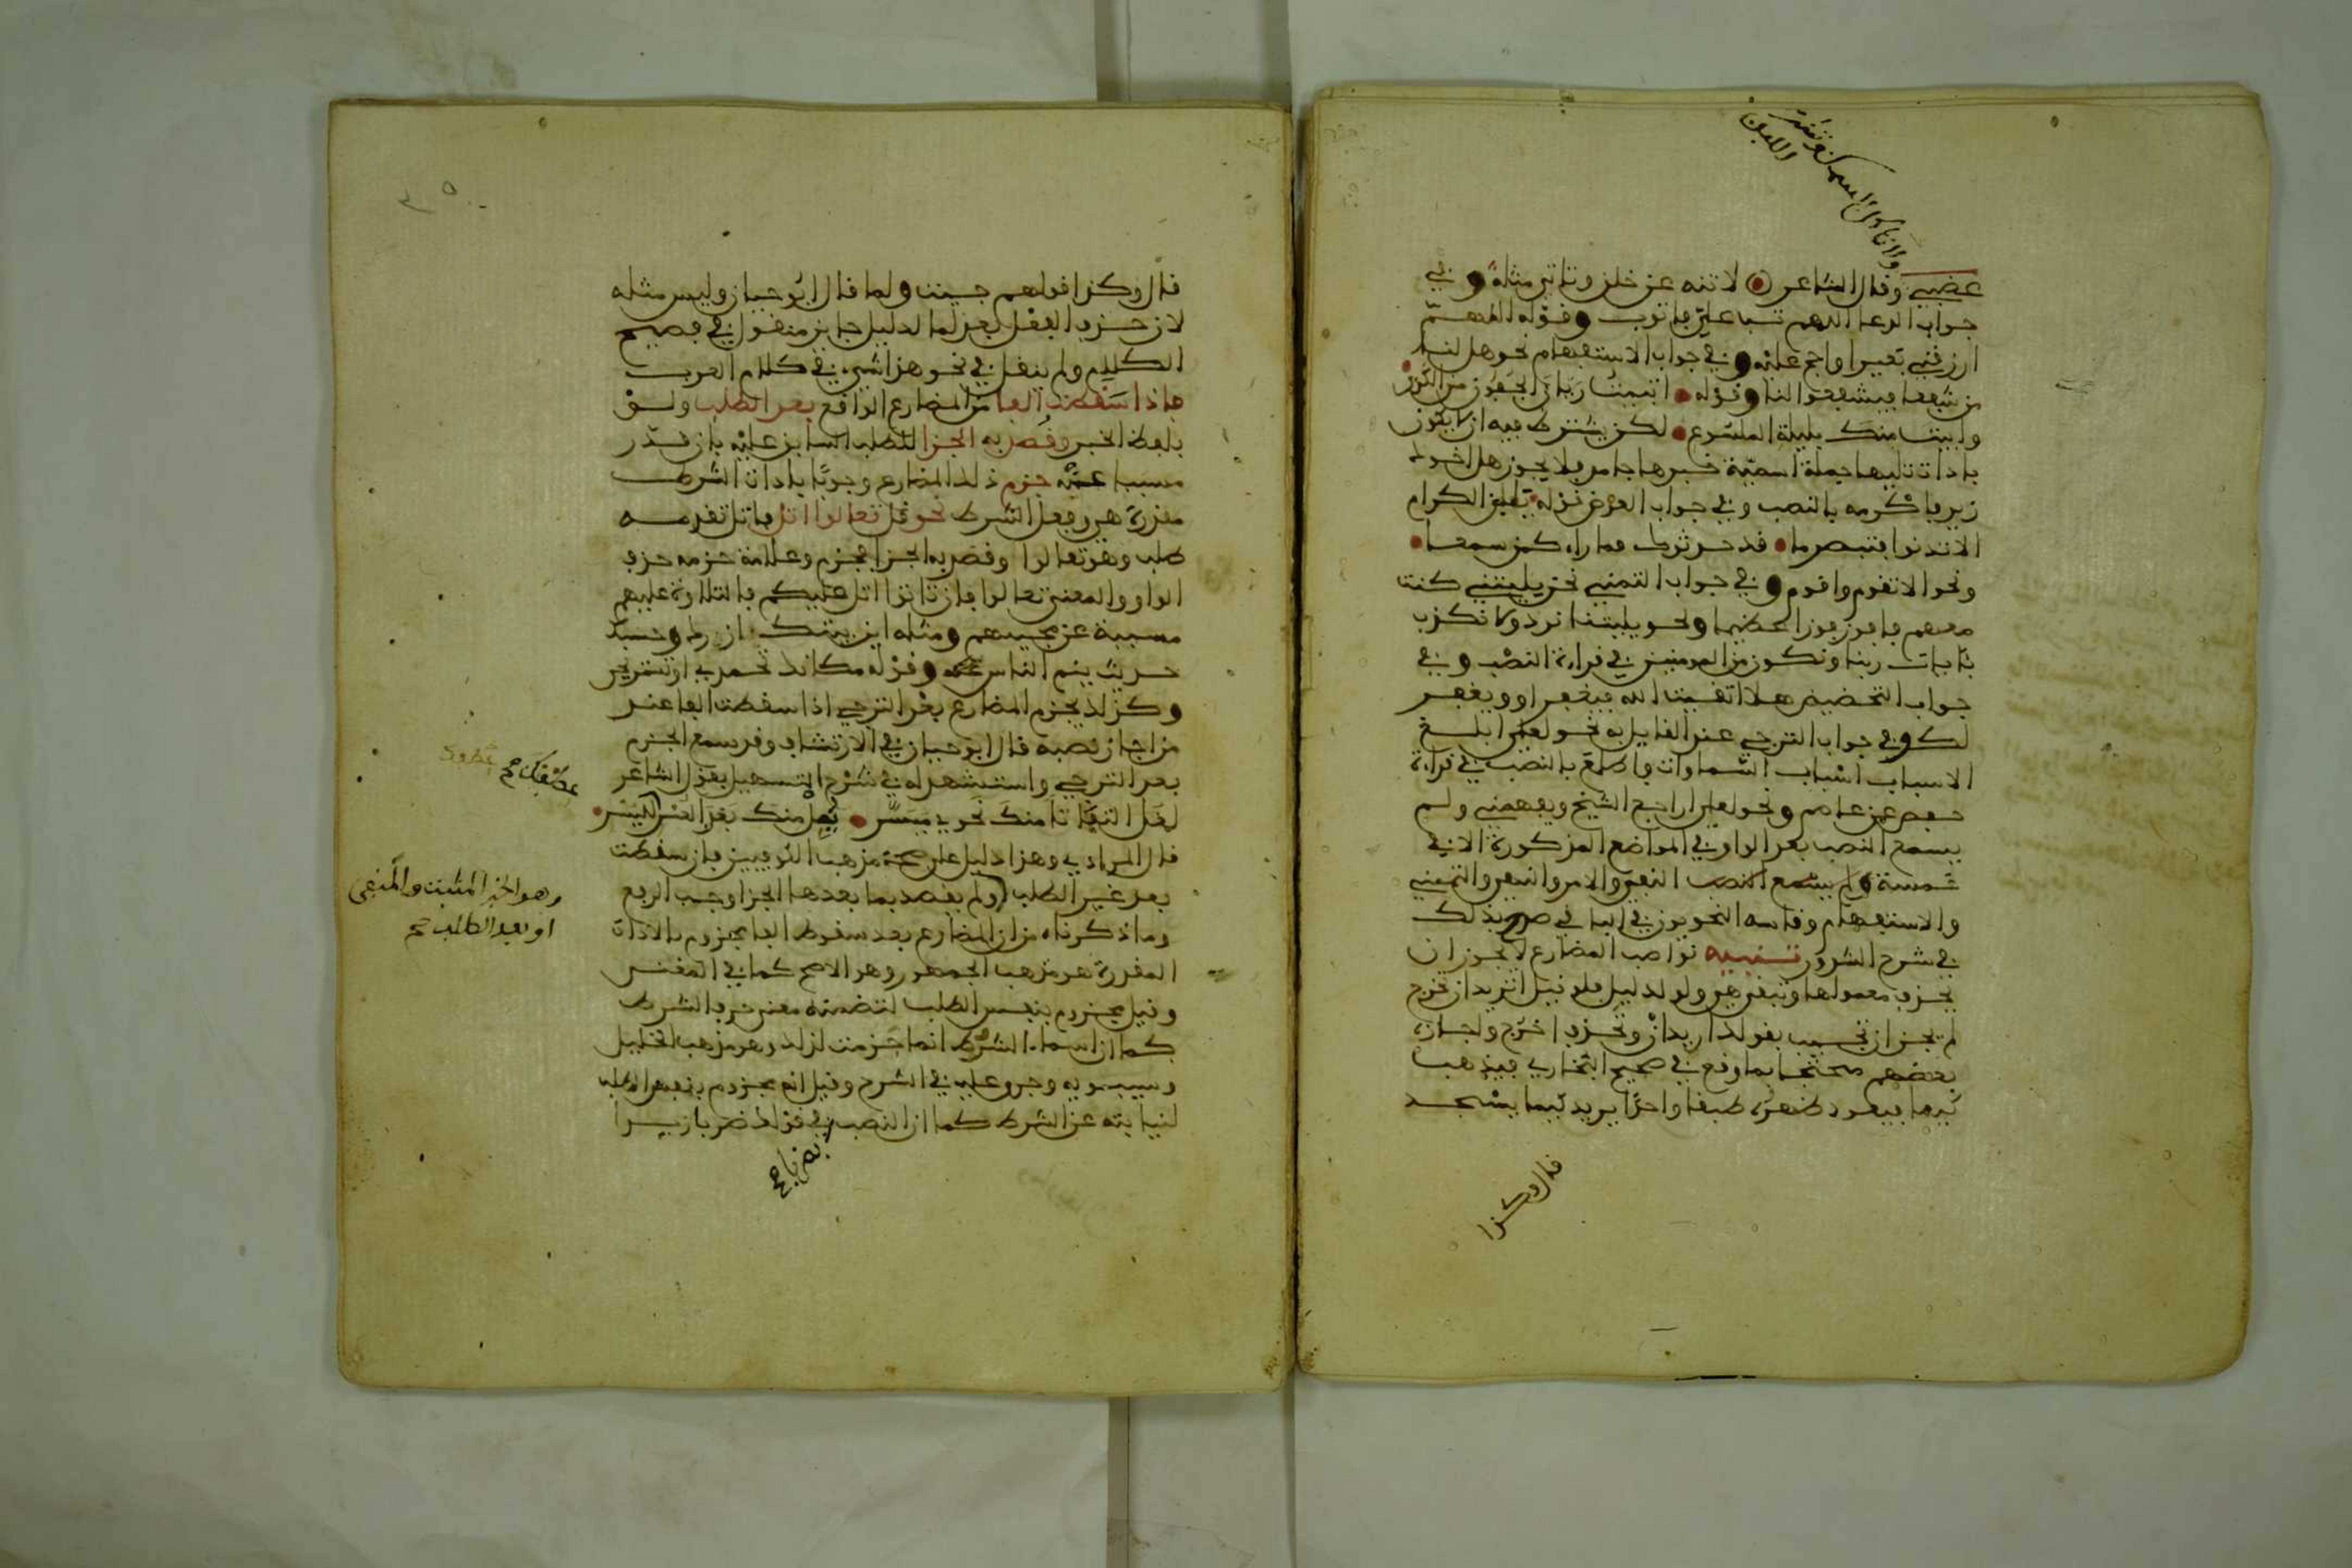 ولا تاكل السمك وتشرب
اللبن
غضبي وقال الشاعر لا تنه عن خلق وتاتي مثله وفي
جواب الدعا اللهم تب علي فاتوب وقوله اللهم
ارزقني بعيرا واحج عليه وفي جواب الاستفهام نحو هل لنا
من شفعا فيشفعوا لنا وقوله اتبيت ريان الجفون من الكرى
وابيت منك بليلة الملسوع لكن يشترط فيه ان لا يكون
باداة تليها جملة اسمية خبرها جامد فلا يجوز هل اخوك
زيد فاكرمه بالنصب وفي جواب العرض قوله يابن الكرام
الا تدنوا فتبصر ما قد حدثوك فما راء كمن سمعا
ونحو الا تقوم واقوم وفي جواب التمني نحو يليتني كنت
معهم فافوز فوزا عظيما ونحو يليتنا نرد ولا نكذب
بئايات ربنا ونكون من المومنين في قراءة النصب وفي
جواب التحضيض هلا اتقيت الله فيغفر او ويغفر
لك وفي جواب الترجي عند القايل به نحو لعلي ابلغ
الاسباب اسباب السماوات فاطلع بالنصب في قراءة
حفص عن عاصم ونحو لعلي اراجع الشيخ ويفهمني ولم
يسمع النصب بعد الواو في المواضع المذكورة الا في
خمسة ولم يسمع النصب النفي والامر والنهي والتمني
والاستفهام وقاسه النحويون في الباقي صرح بذلك
في شرح الشذور تنبيه نواصب المضارع لا يجوز ان
يحذف معمولها وتبقى هي ولو لدليل فلو قيل اتريد ان تخرج
لم يجز ان تجيب بقولك اريد ان وتحذف اخرج واجازه
بعضهم محتجا بما وقع في صحيح البخاري فيذهب
كيما فيعود ظهره طبقا واحدا يريد كيما يسجد
قال وكذا
قال وكذا قولهم جيت ولما قال ابو حيان وليس مثله
لان حذف الفعل بعد لما لدليل جايز منقول في فصيح
الكلام ولم ينقل في نحو هذا شيء في كلام العرب
فاذا سقطت الفا من المضارع الواقع بعد الطلب ولو
بلفظ الخبر وقصد به الجزا للطلب السابق عليه بان قدر
مسببا عنه جزم ذلك المضارع وجوبا باداة الشرط
مقدرة هي وفعل الشرط نحو قل تعالوا اتل فاتل تقدمه
طلب وهو تعالوا وقصد به الجزا فجزم وعلامة جزمه حذف
الواو والمعنى تعالوا فان تاتوا اتل عليكم فالتلاوة عليهم
مسببة عن مجيبهم ومثله اين بيتك ازرك وحسبك
حديث ينم الناس وقوله مكانك تحمدي او تستريحي
وكذلك يجزم المضارع بعد الترجي اذا سقطت الفا عند
من اجاز نصبه قال ابو حيان في الارتشاف وقد سمع الجزم
بعد الترجي واستشهد له في شرح التسهيل بقول الشاعر
لعل التفاتا منك نحوي ميسر يمل منك بعد العسر لليسر
قال المرادي وهذا دليل على صحة مذهب الكوفيين فان سقطت
بعد غير الطلب او لم يقصد بما بعدها الجزا وجب الرفع
وما ذكرناه من ان المضارع بعد سقوط الفا مجزوم بالاداة
المقدرة هو مذهب الجمهور وهو الاصح كما في المغني
وقيل مجزوم بنفس الطلب لتضمنه معنى حرف الشرط
كما ان اسماء الشرط انما جزمت لذلك وهو مذهب الخليل
وسيبويه وجرى عليه في الشرح وقيل انه مجزوم بنفس الطلب
لنيابته عن الشرط كما ان النصب في قولك ضربا زيدا
عطفك صح
وهو الخبر المثبت والمنفى
او بعد الطلب صح